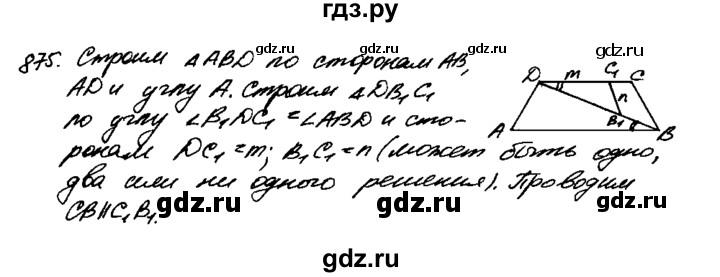 гдз.ру
875. Строим △ABD по сторонам AB,
AD и углу A. Строим △DB₁C₁
по углу ∠B₁DC₁=∠ABD и сто-
ронам DC₁=m; B₁C₁=n (может быть одно,
два или ни одного решения). Проводим
CB||C₁B₁.
D m C₁ C
n
B₁
A B
gdz.ru gdz.ru gdz.ru
gdz.ru gdz.ru gdz.ru
gdz.ru gdz.ru gdz.ru
gdz.ru gdz.ru gdz.ru
gdz.ru